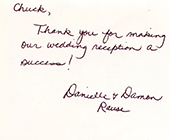 Chuck,
Thank you for making
our wedding reception a
success!
Danielle & Damon
Reuse